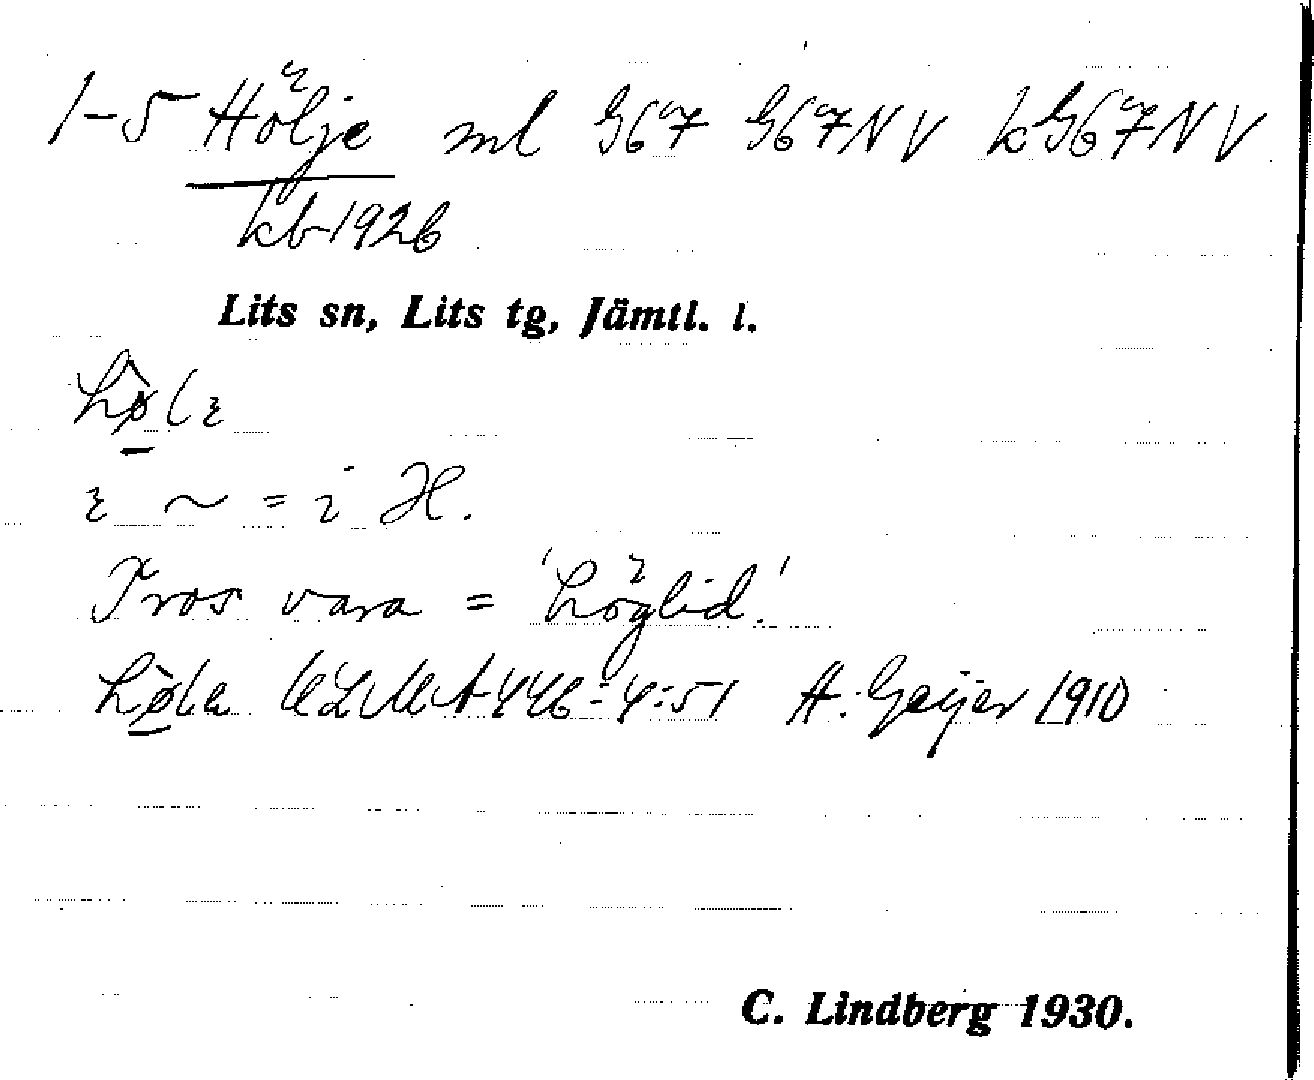 1-5 Hölje ml G67 G67NV kG67NV
kb 1926
Lits sn, Lits tg, Jämtl. l.
i
Tros vara = 'Höglid.'
ULMA 446:4:51 H. Geijer 1910
C. Lindberg 1930.